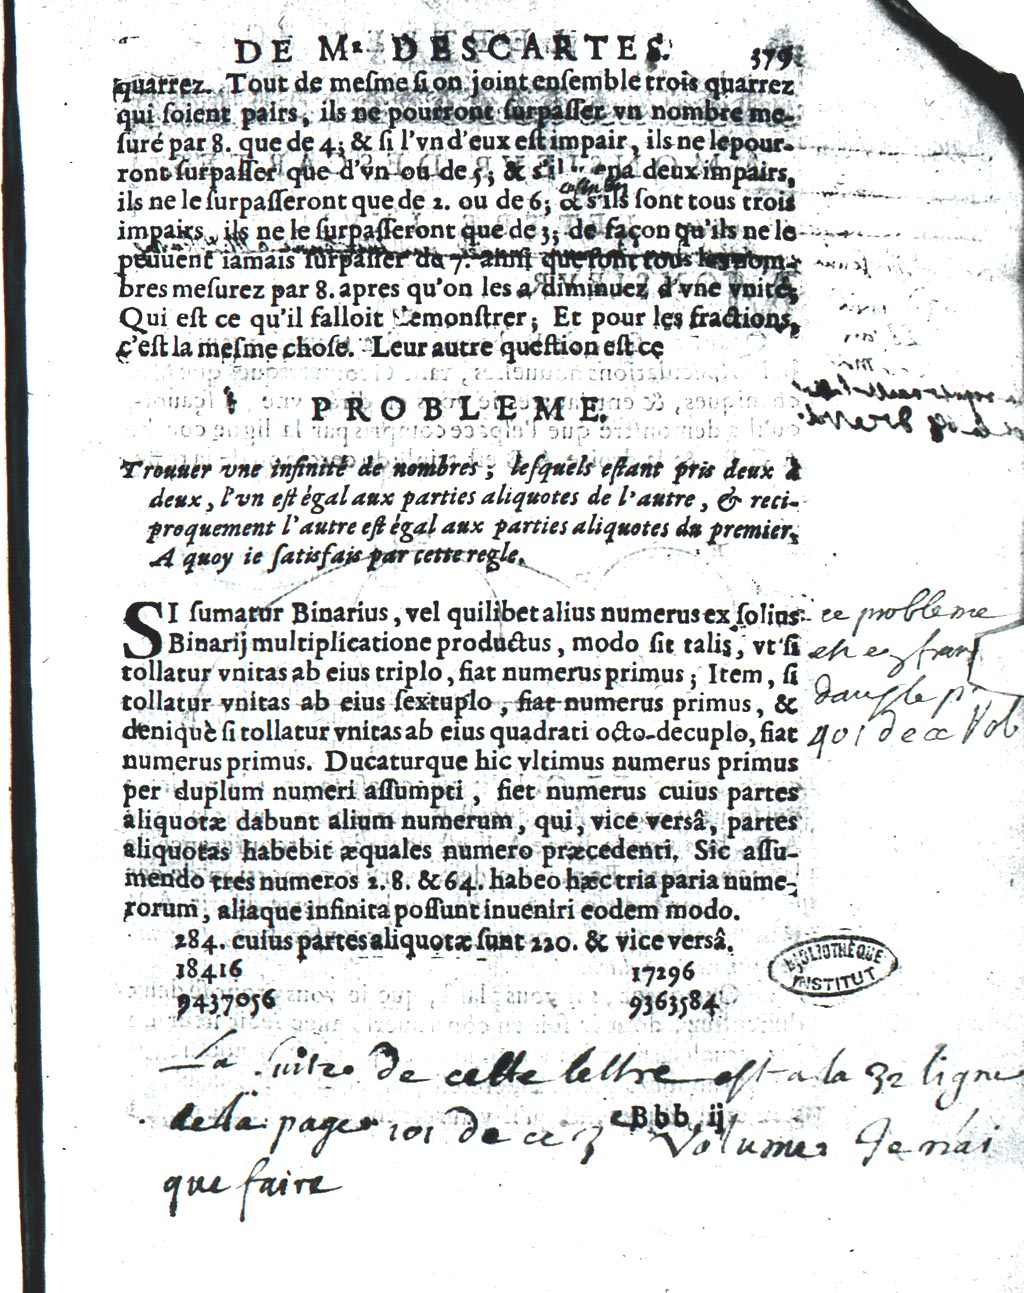 DE Mr. DESCARTES. 379
quarrez. Tout de meſme ſi on joint enſemble trois quarrez
qui ſoient pairs, ils ne pourront ſurpaſſer vn nombre me-
ſuré par 8. que de 4; & ſi l'vn d'eux eſt impair, ils ne le pour-
ront ſurpaſſer que d'vn ou de 5; & s'il deux impairs,
ils ne le ſurpaſſeront que de 2. ou de 6; & s'ils ſont tous trois
impairs, ils ne le ſurpaſſeront que de 3; de façon qu'ils ne le
peuuent iamais ſurpaſſer de 7. ainſi que ſont tous les nom-
bres meſurez par 8. apres qu'on les a diminuez d'vne vnité;
Qui eſt ce qu'il falloit demonſtrer; Et pour les fractions,
c'eſt la meſme choſe. Leur autre queſtion eſt ce
PROBLEME.
Trouuer vne infinité de nombres, leſquels eſtant pris deux à
deux, l'vn eſt égal aux parties aliquotes de l'autre, & reci-
proquement l'autre eſt égal aux parties aliquotes du premier.
A quoy ie ſatisfais par cette regle.
SI ſumatur Binarius, vel quilibet alius numerus ex ſolius
Binarij multiplicatione productus, modo ſit talis, vt ſi
tollatur vnitas ab eius triplo, fiat numerus primus; Item, ſi
tollatur vnitas ab eius ſextuplo, fiat numerus primus, &
denique ſi tollatur vnitas ab eius quadrati octo-decuplo, fiat
numerus primus. Ducaturque hic vltimus numerus primus
per duplum numeri aſſumpti, fiet numerus cuius partes
aliquotæ dabunt alium numerum, qui, vice verſâ, partes
aliquotas habebit æquales numero præcedenti. Sic aſſu-
mendo tres numeros 2. 8. & 64. habeo hæc tria paria nume-
rorum, aliaque infinita poſſunt inueniri eodem modo.
284. cuius partes aliquotæ ſunt 220. & vice verſâ.
18416 17296
9437056 9363584
ce probleme
est en
dans le
401 de ce Vol
BIBLIOTHÈQUE
INSTITUT
La suite de cette lettre est a la 32 ligne
de la page 101 de ce 3 Volume Je n'ai
Bbb ij
que faire